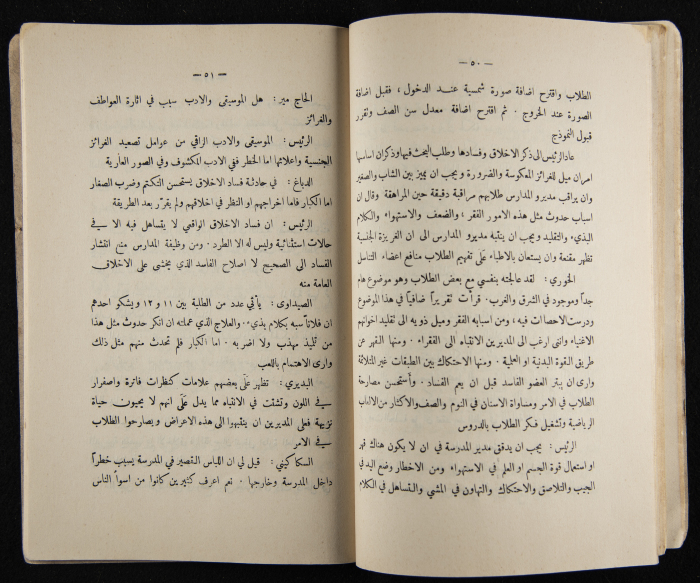 — ٥٠ —
الطلاب واقترح اضافة صورة شمسية عند الدخول ، فقبل اضافة
الصورة عند الخروج . ثم اقترح اضافة معدل سن الصف وتقرر
قبول النموذج
عاد الرئيس الى ذكر الاخلاق وفسادها وطلب البحث فيها وذكر ان اساسها
امران ميل للغرائز المعكوسة والضرورة ويجب ان يميز بين الشاب والصغير
وان يراقب مديرو المدارس طلابهم مراقبة دقيقة حين المراهقة وقال ان
اسباب حدوث مثل هذه الامور الفقر ، والضعف والاستهواء والكلام
البذيء والتقليد ويجب ان ينتبه مديرو المدارس الى ان الغريزة الجنسية
تظهر مقنعة وان يستعان بالاطباء على تفهيم الطلاب منافع اعضاء التناسل
الخوري : لقد عالجته بنفسي مع بعض الطلاب وهو موضوع هام
جداً وموجود في الشرق والغرب. قرأت تقريراً ضافياً في هذا الموضوع
ودرست الاحصاآت فيه ، ومن اسبابه الفقر وميل ذويه الى تقليد اخوانهم
الاغنياء وانني ارغب الى المديرين الانتباه الى الفقراء . ومنها القهر عن
طريق القوة البدنية او العملية . ومنها الاحتكاك بين الطبقات غير المتماثلة
وارى ان يبتر العضو الفاسد قبل ان يعم الفساد . وأستحسن مصارحة
الطلاب في الامر ومساواة الاسنان في النوم والصف والاكثار من الالعاب
الرياضية وتشغيل فكر الطلاب بالدروس
الرئيس : يجب ان يدقق مدير المدرسة في ان لا يكون هناك قهر
او استعمال قوة الجسم او العلم في الاستهواء ومن الاخطار وضع اليد في
الجيب والتلاصق والاحتكاك والتهاون في المشي والتساهل في الكلام
— ٥١ —
الحاج مير : هل الموسيقى والادب سبب في اثارة العواطف
والغرائز
الرئيس : الموسيقى والادب الراقي من عوامل تصعيد الغرائز
الجنسية واعلائها اما الخطر ففي الادب المكشوف وفي الصور العارية
الدباغ : في حادثة فساد الاخلاق يستحسن التكتم وضرب الصغار
اما الكبار فاما اخراجهم او النظر في اخلاقهم ولم يقرّر بعد الطريقة
الرئيس : ان فساد الاخلاق الواقعي لا يتساهل فيه الا في
حالات استثنائية وليس له الا الطرد . ومن وظيفة المدارس منع انتشار
الفساد الى الصحيح لا اصلاح الفاسد الذي يخشى على الاخلاق
العامة منه
الصيداوي : يأتي عدد من الطلبة بين ١١ و ١٢ ويشكو احدهم
ان فلاناً سبه بكلام بذيء . والعلاج الذي عملته ان انكر حدوث مثل هذا
من تلميذ مهذب ولا اضربه . اما الكبار فلم تحدث منهم مثل ذلك
وارى الاهتمام باللعب
البديري : تظهر على بعضهم علامات كنظرات فاترة واصفرار
في اللون وتشتت في الانتباه مما يدل على انهم لا يحيون حياة
نزيهة فعلى المديرين ان ينتبهوا الى هذه الاعراض ويصارحوا الطلاب
في الامر
السكاكيني : قيل لي ان اللباس القصير في المدرسة يسبب خطراً
داخل المدرسة وخارجها . نعم اعرف كثيرين كانوا من اسوأ الناس